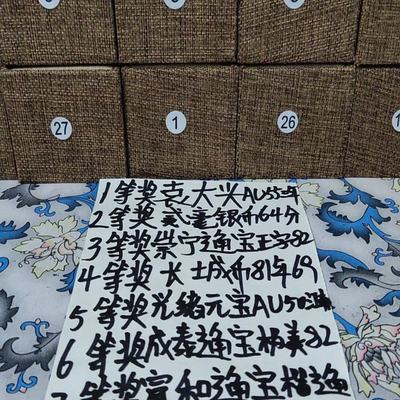 27
1
26
1等奖袁大头AU55
2等奖 银币64分
3等奖崇宁通宝正字82
4等奖长城币81年69
5等奖光绪元宝AU50
6等奖咸泰通宝 美82
7等奖宣和通宝